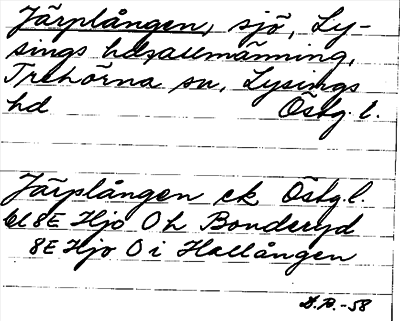 Järplången, sjö, Ly-
sings hdsallmänning,
Trehörna sn, Lysings
hd Östg. l.
Järplången ek Östg. l.
8E Hjo 0 h Bonderyd
8E Hjo 0 i Hallången
D.P.-58